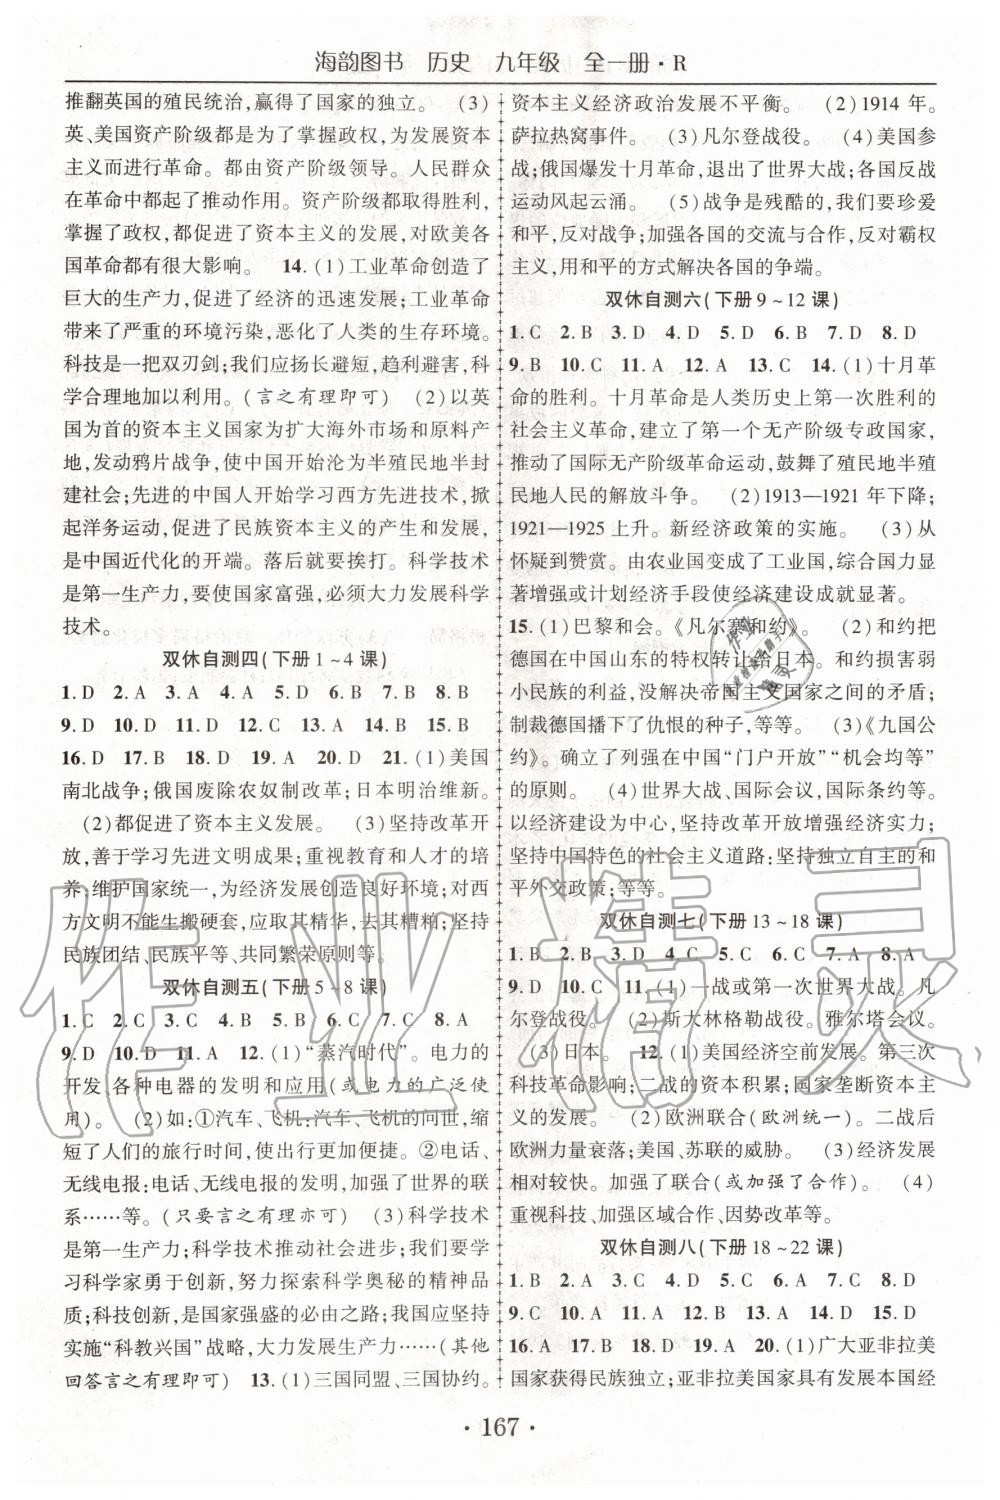 海韵图书 历史 九年级 全一册·R
推翻英国的殖民统治,赢得了国家的独立。 (3)
英、美国资产阶级都是为了掌握政权,为发展资本
主义而进行革命。都由资产阶级领导。人民群众
在革命中都起了推动作用。资产阶级都取得胜利,
掌握了政权,都促进了资本主义的发展,对欧美各
国革命都有很大影响。 14.(1)工业革命创造了
巨大的生产力,促进了经济的迅速发展;工业革命
带来了严重的环境污染,恶化了人类的生存环境。
科技是一把双刃剑;我们应扬长避短,趋利避害,科
学合理地加以利用。(言之有理即可) (2)以英
国为首的资本主义国家为扩大海外市场和原料产
地,发动鸦片战争,使中国开始沦为半殖民地半封
建社会;先进的中国人开始学习西方先进技术,掀
起洋务运动,促进了民族资本主义的产生和发展,
是中国近代化的开端。落后就要挨打。科学技术
是第一生产力,要使国家富强,必须大力发展科学
技术。
双休自测四(下册1~4课)
1.D 2.A 3.A 4.D 5.D 6.B 7.B 8.B
9.D 10.D 11.D 12.B 13.A 14.B 15.B
16.D 17.B 18.D 19.A 20.D 21.(1)美国
南北战争;俄国废除农奴制改革;日本明治维新。
(2)都促进了资本主义发展。 (3)坚持改革开
放,善于学习先进文明成果;重视教育和人才的培
养;维护国家统一,为经济发展创造良好环境;对西
方文明不能生搬硬套,应取其精华,去其糟粕;坚持
民族团结、民族平等、共同繁荣原则等。
双休自测五(下册5~8课)
1.C 2.C 3.C 4.B 5.B 6.C 7.C 8.A
9.D 10.D 11.A 12.(1)“蒸汽时代”。电力的
开发、各种电器的发明和应用(或电力的广泛使
用)。 (2)如:①汽车、飞机:汽车、飞机的问世,缩
短了人们的旅行时间,使人们外出更加便捷。②电话、
无线电报:电话、无线电报的发明,加强了世界的联
系……等。(只要言之有理亦可) (3)科学技术
是第一生产力;科学技术推动社会进步;我们要学
习科学家勇于创新,努力探索科学奥秘的精神品
质;科技创新,是国家强盛的必由之路;我国应坚持
实施“科教兴国”战略,大力发展生产力……(其他
回答言之有理即可) 13.(1)三国同盟、三国协约。
资本主义经济政治发展不平衡。 (2)1914年。
萨拉热窝事件。 (3)凡尔登战役。 (4)美国参
战;俄国爆发十月革命,退出了世界大战;各国反战
运动风起云涌。 (5)战争是残酷的,我们要珍爱
和平,反对战争;加强各国的交流与合作,反对霸权
主义,用和平的方式解决各国的争端。
双休自测六(下册9~12课)
1.C 2.B 3.D 4.D 5.D 6.D 7.D 8.D
9.B 10.C 11.A 12.A 13.C 14.(1)十月革
命的胜利。十月革命是人类历史上第一次胜利的
社会主义革命,建立了第一个无产阶级专政国家,
推动了国际无产阶级革命运动,鼓舞了殖民地半殖
民地人民的解放斗争。 (2)1913—1921年下降;
1921—1925上升。新经济政策的实施。 (3)从
怀疑到赞赏。由农业国变成了工业国,综合国力显
著增强或计划经济手段使经济建设成就显著。
15.(1)巴黎和会。《凡尔赛和约》。 (2)和约把
德国在中国山东的特权转让给日本。和约损害弱
小民族的利益,没解决帝国主义国家之间的矛盾;
制裁德国播下了仇恨的种子,等等。 (3)《九国公
约》。确立了列强在中国“门户开放”“机会均等”
的原则。 (4)世界大战、国际会议,国际条约等。
以经济建设为中心,坚持改革开放增强经济实力;
坚持中国特色的社会主义道路;坚持独立自主的和
平外交政策;等等。
双休自测七(下册13~18课)
1.B 2.B 3.D 4.D 5.C 6.B 7.A 8.A
9.D 10.C 11.(1)一战或第一次世界大战。凡
尔登战役。 (2)斯大林格勒战役。雅尔塔会议。
(3)日本。 12.(1)美国经济空前发展。第三次
科技革命影响;二战的资本积累;国家垄断资本主
义的发展。 (2)欧洲联合(欧洲统一)。二战后
欧洲力量衰落;美国、苏联的威胁。 (3)经济发展
相对较快。加强了联合(或加强了合作)。 (4)
重视科技、加强区域合作、因势改革等。
双休自测八(下册18~22课)
1.B 2.D 3.C 4.A 5.A 6.C 7.A 8.D
9.C 10.A 11.A 12.B 13.D 14.D 15.D
16.A 17.B 18.A 19.A 20.(1)广大亚非拉美
国家获得民族独立;亚非拉美国家具有发展本国经
·167·
作业精灵